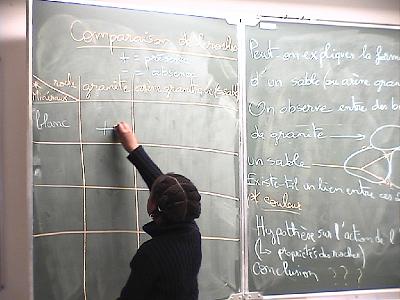 Comparaison de roches
+ = présence
= absence
roche granite arène granitique sable
Minéraux
blanc +
Peut-on expliquer la forma
d'un sable (ou arène grani
On observe entre des b
de granite
un sable
Existe-t-il un lien entre ces
et couleur
Hypothèse sur l'action de l'
(↳ propriétés des roches)
Conclusion ? ? ?